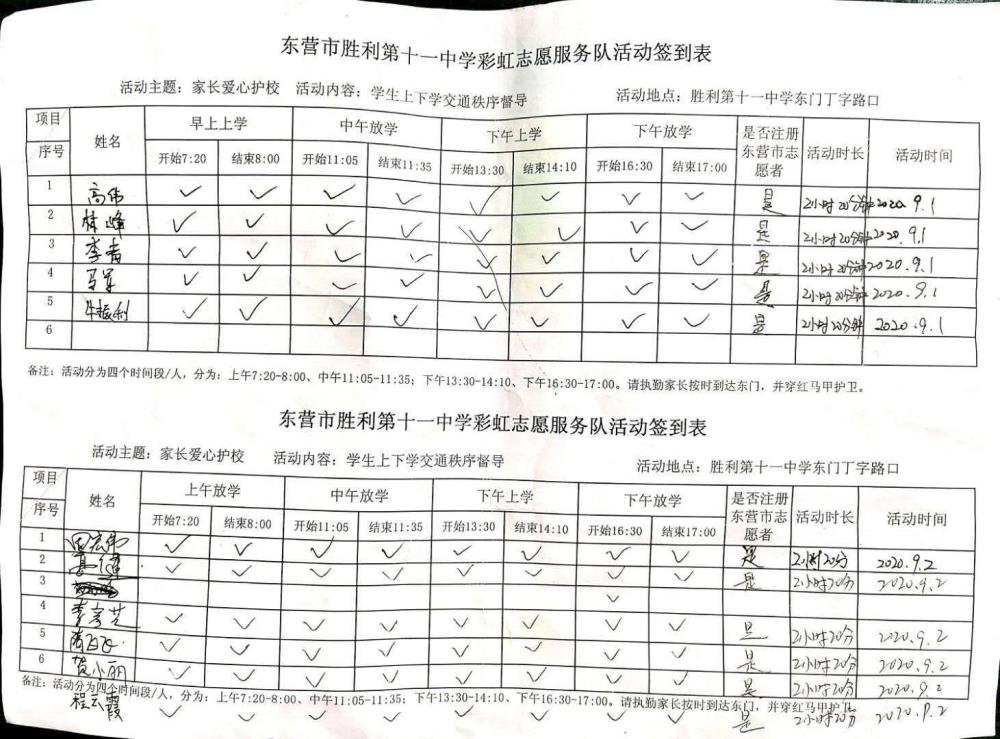 东营市胜利第十一中学彩虹志愿服务队活动签到表
活动主题：家长爱心护校 活动内容：学生上下学交通秩序督导 活动地点：胜利第十一中学东门丁字路口
项目 姓名 早上上学 中午放学 下午上学 下午放学 是否注册东营市志愿者 活动时长 活动时间
序号 开始7:20 结束8:00 开始11:05 结束11:35 开始13:30 结束14:10 开始16:30 结束17:00
1 高伟 ✓ ✓ ✓ ✓ ✓ ✓ ✓ ✓ 是 2小时20分钟 2020.9.1
2 林峰 ✓ ✓ ✓ ✓ ✓ ✓ ✓ ✓ 是 2小时20分钟 2020.9.1
3 李青 ✓ ✓ ✓ ✓ ✓ ✓ ✓ ✓ 是 2小时20分钟 2020.9.1
4 马军 ✓ ✓ ✓ ✓ ✓ ✓ ✓ ✓ 是 2小时20分钟 2020.9.1
5 牛振利 ✓ ✓ ✓ ✓ ✓ ✓ ✓ ✓ 是 2小时20分钟 2020.9.1
6
备注：活动分为四个时间段/人，分为：上午7:20-8:00、中午11:05-11:35；下午13:30-14:10、下午16:30-17:00。请执勤家长按时到达东门，并穿红马甲护卫。
东营市胜利第十一中学彩虹志愿服务队活动签到表
活动主题：家长爱心护校 活动内容：学生上下学交通秩序督导 活动地点：胜利第十一中学东门丁字路口
项目 姓名 上午放学 中午放学 下午上学 下午放学 是否注册东营市志愿者 活动时长 活动时间
序号 开始7:20 结束8:00 开始11:05 结束11:35 开始13:30 结束14:10 开始16:30 结束17:00
1 ✓ ✓ ✓ ✓ ✓ ✓ ✓ ✓ 是 2小时20分 2020.9.2
2 ✓ ✓ ✓ ✓ ✓ ✓ ✓ ✓ 是 2小时20分 2020.9.2
3 ✓
4 ✓ ✓ ✓ ✓ ✓ ✓ ✓ ✓ 是 2小时20分 2020.9.2
5 ✓ ✓ ✓ ✓ ✓ ✓ ✓ ✓ 是 2小时20分 2020.9.2
6 贺小丽 ✓ ✓ ✓ ✓ ✓ ✓ ✓ ✓ 是 2小时20分 2020.9.2
备注：活动分为四个时间段/人，分为：上午7:20-8:00、中午11:05-11:35、下午13:30-14:10、下午16:30-17:00。请执勤家长按时到达东门，并穿红马甲护卫。
程云霞 ✓ ✓ ✓ ✓ ✓ ✓ ✓ ✓ 是 2小时20分 2020.9.2